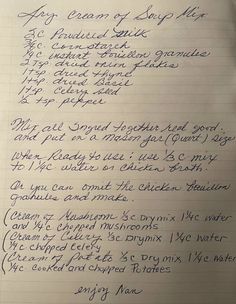 Dry Cream of Soup Mix
2c Powdered Milk
3/4c. cornstarch
1/4c instant bouillon granules
2 Tsp dried onion flakes
1 tsp dried thyme
1 tsp dried Basil
1t Celery seed
1/2 tsp pepper
Mix all Ingred together real good.
and put in a Mason jar (Quart) Size
When Ready to use: use 1/3c mix
to 1 1/4c water or chicken broth.
Or you can omit the chicken bouillon
granules and make.
(Cream of Mushroom 1/3c Dry mix 1 1/4c water
and 1/4c chopped mushrooms
(Cream of Celery 1/3c Dry mix 1 1/4c water
1/4c chopped celery
(Cream of potato 1/3c Dry mix 1 1/4c Water
1/4c cooked and chopped Potatoes
enjoy Nan